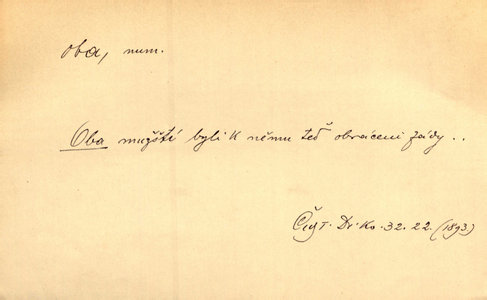 oba, num.
Oba mužští byli k němu teď obráceni zády..
Dr. Ko. 32. 22. (1893)